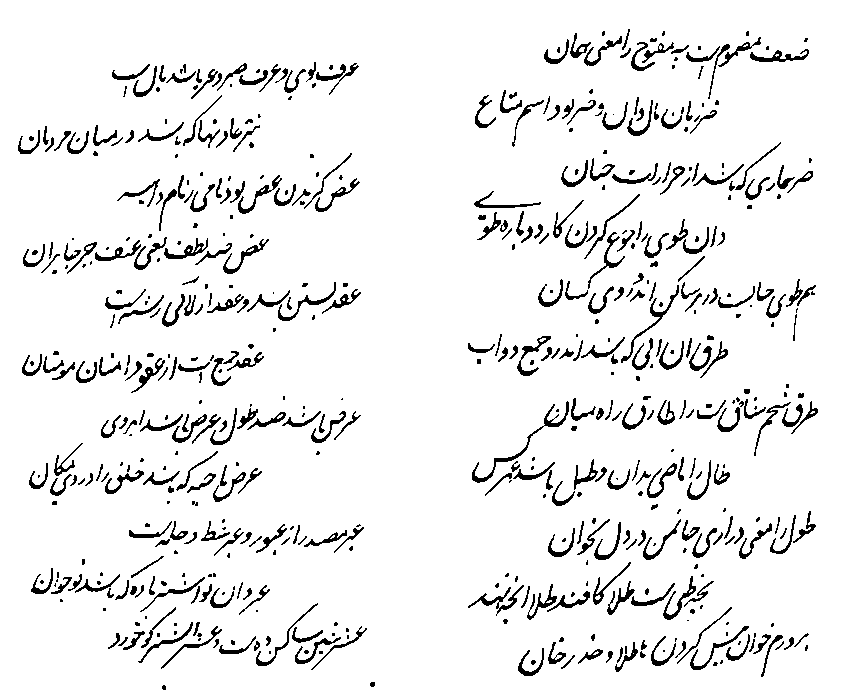 ضعف مضموم است به مفتوح را معنی همان
ضر زیان مال دان و ضر بود اسم متاع
ضر بخاری که باشد از حرارات جنان
دان طوی را جوع کردن کار دوباره طوی
هم طوی جاییست در بر ساکن اندر وی کسان
طرق آن آبی که باشد اندرو جمع دواب
طرق شحم ناقه است را طارق راه میان
طال را ماضی بدان و طبل باشد
طول را معنی درازی جان من در دل بخوان
است طلا کافند طلا آنچه
خوان پیش کردن با طلا و حذر خان
عرف بوی و عرف صبر و عرف باشد یال اسب
نیز عادتها که باشد در میان مردمان
عض گزیدن عض بود نامی ز نام داهیه
عض ضد لطف یعنی عنف جبر جابران
عقد بستن باشد و عقد از لآلی رشته است
عقد جمع است از عقود امنان مومنان
عرض باشد ضد طول و عرض باشد ابروی
عرض ناحیه که باشد خلق را در وی مکان
عبر مصدر از عبور و عبر شط دجله است
عبر دان تو اشتر ماده که باشد نوجوان
عشر شین ساکن ده است و عشر اشتر کو خورد